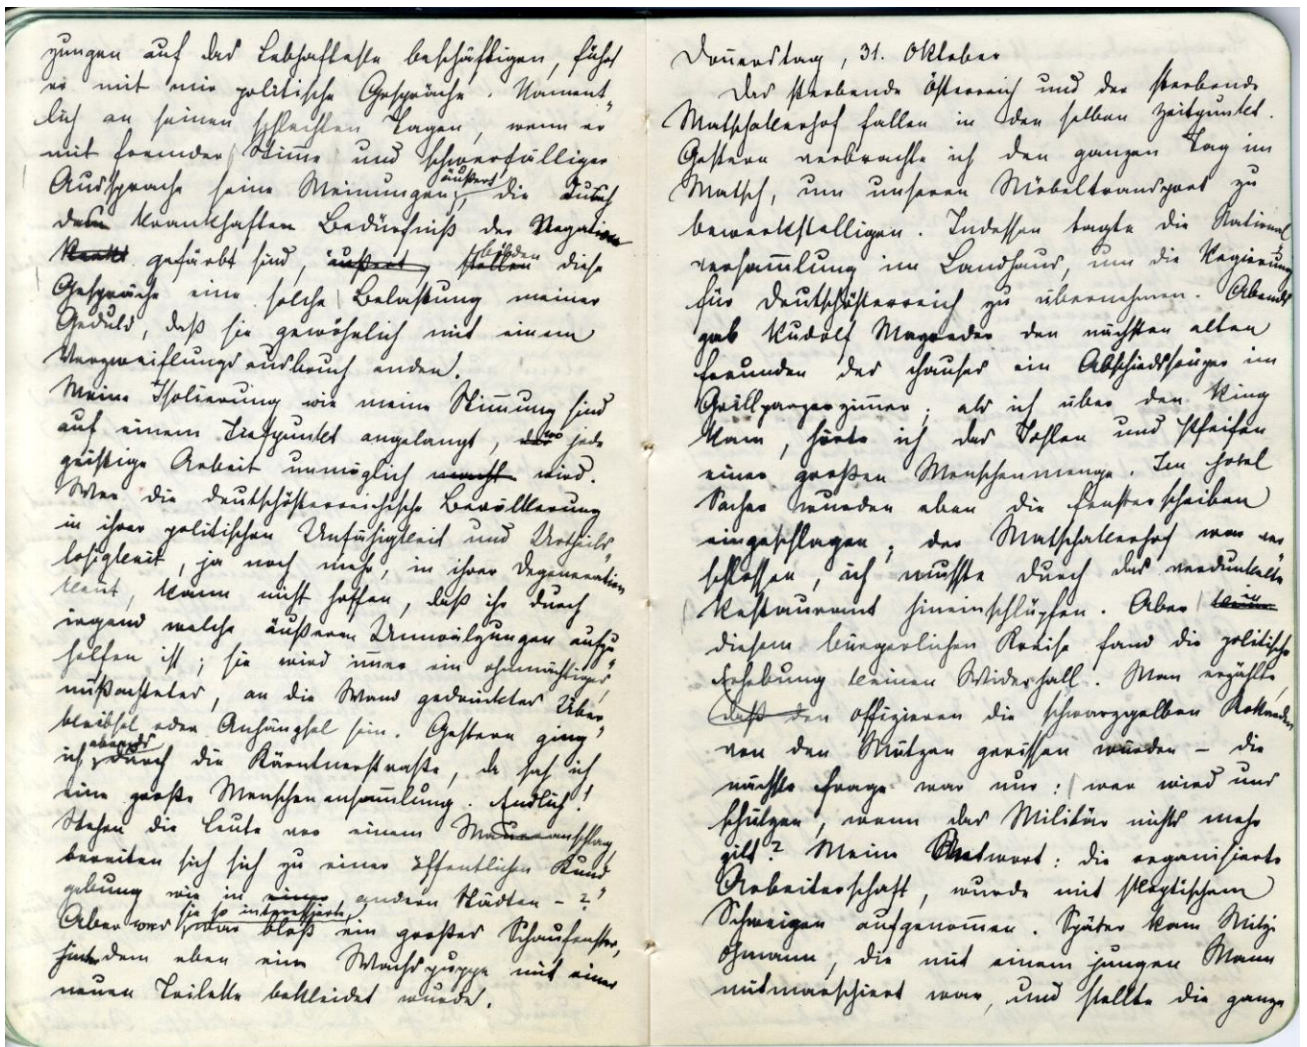 zungen auf das Lebhafteste beschäftigen, führt
er mit mir politische Gespräche. Nament-
lich an seinen schlechten Tagen, wenn er
mit fremder Stimme und schwerfälliger
Aussprache seine Meinungen äußert, die durch
das krankhaften Bedürfniß der Negation
gefärbt sind, äußert, stellen bilden diese
Gespräche eine solche Belastung meiner
Geduld, daß sie gewöhnlich mit einem
Verzweiflungsausbruch enden.
Meine Isolierung wie meine Stimmung sind
auf einem Tiefpunkt angelangt, wo jede
geistige Arbeit unmöglich macht wird.
Wer die deutschösterreichische Bevölkerung
in ihrer politischen Unfähigkeit und Urtheils-
losigkeit, ja noch mehr, in ihrer Degeneration
kennt, kann nicht hoffen, daß ihr durch
irgend welche äußeren Umwälzungen aufzu-
helfen ist; sie wird immer ein ohnmächtiges,
mißachtetes, an die Wand gedrücktes Über-
bleibsel oder Anhängsel sein. Gestern ging
ich abends durch die Kärntnerstraße, da sah ich
eine große Menschenansammlung. Endlich!
Stehen die Leute vor einem Maueranschlag,
bereiten sich sich zu einer öffentlichen Kund-
gebung wie in einer andern Städten – ?
Aber was sie so interessierte, war bloß ein großes Schaufenster,
in dem eben eine Wachspuppe mit einer
neuen Toilette bekleidet wurde.
Donnerstag, 31. Oktober
Das sterbende Österreich und der sterbende
Matschakerhof fallen in den selben Zeitpunkt.
Gestern verbrachte ich den ganzen Tag im
Matsch, um unseren Möbeltransport zu
bewerkstelligen. Indessen tagte die National-
versammlung im Landhaus, um die Regierung
für Deutschösterreich zu übernehmen. Abends
gab Rudolf Mayreder den nächsten alten
Freunden des Hauses ein Abschiedssouper im
Grillparzerzimmer; als ich über den Ring
kam, hörte ich das Johlen und Pfeifen
einer großen Menschenmenge. Im Hotel
Sacher wurden eben die Fensterscheiben
eingeschlagen; der Matschakerhof war ver-
schlossen, ich mußte durch das verdunkelte
Restaurant hineinschlüpfen. Aber in
diesem bürgerlichen Kreise fand die politische
Erhebung keinen Widerhall. Man erzählte,
daß den Offizieren die schwarzgelben Kokarden
von den Mützen gerissen wurden – die
nächste Frage war nur: wer wird uns
schützen, wenn das Militär nichts mehr
gilt? Meine Antwort: die organisierte
Arbeiterschaft, wurde mit skeptischem
Schweigen aufgenommen. Später kam Mitzi
Ohmann, die mit einem jungen Mann
mitmarschiert war, und stellte die ganze